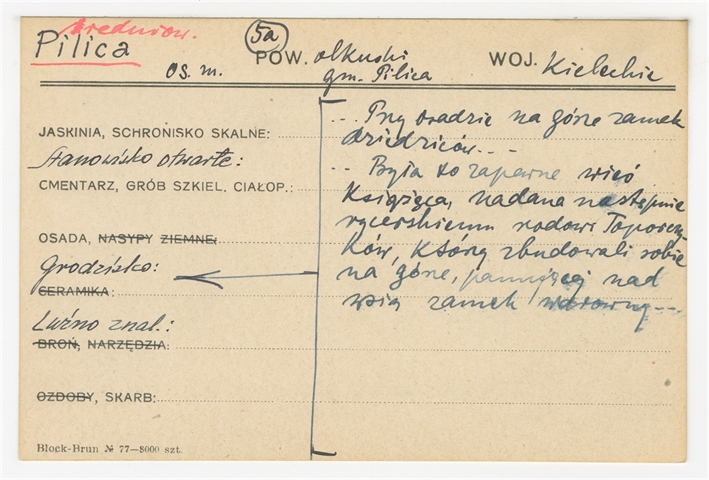 średniow.
Pilica
os. m.
5a
POW. olkuski
gm. Pilica
WOJ. Kieleckie
JASKINIA, SCHRONISKO SKALNE:
Stanowisko otwarte:
CMENTARZ, GRÓB SZKIEL. CIAŁOP.:
OSADA, NASYPY ZIEMNE:
Grodzisko:
CERAMIKA:
Luźno znal.:
BROŃ, NARZĘDZIA:
OZDOBY, SKARB:
... Przy osadzie na górze zamek
dziedziców...
.. Była to zapewne wieś
Książęca, nadana następnie
rycerskiemu rodowi Toporczy-
ków, którzy zbudowali sobie
na górze, panującej nad
wsią zamek warowny...
Block-Brun № 77—8000 szt.